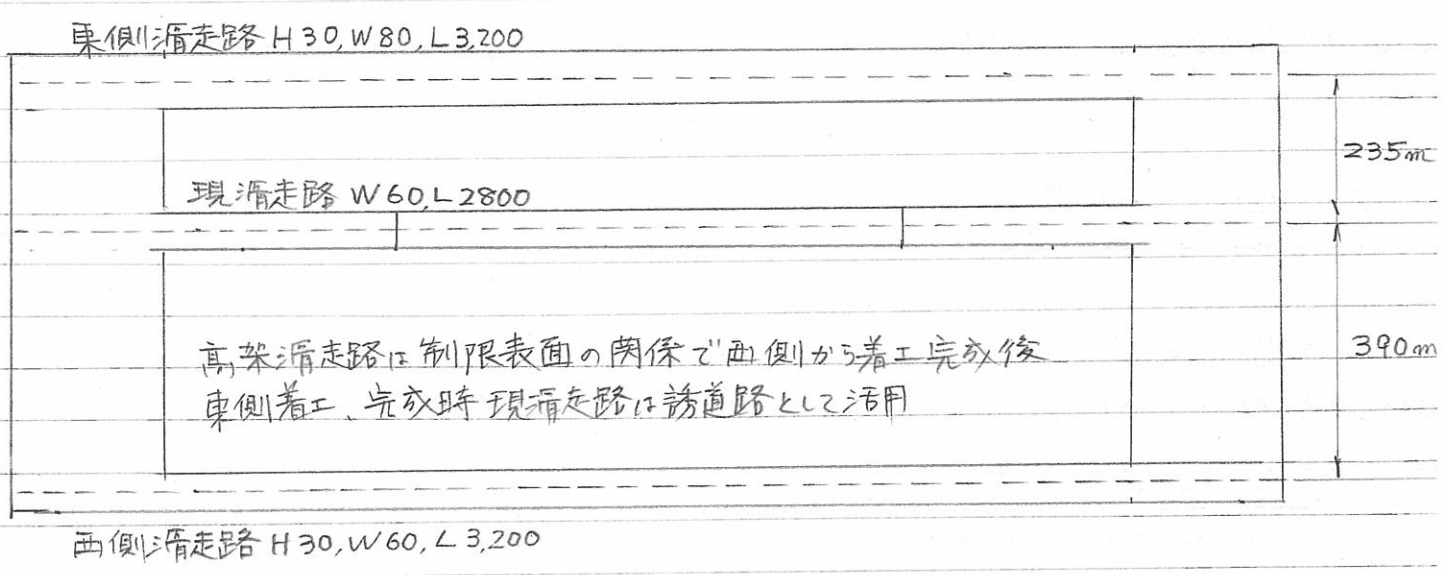 東側滑走路 H30, W80, L3,200
235m
現滑走路 W60, L2800
高架滑走路は制限表面の関係で西側から着工完成後
390m
東側着工、完成時現滑走路は誘道路として活用
西側滑走路 H30, W60, L3,200